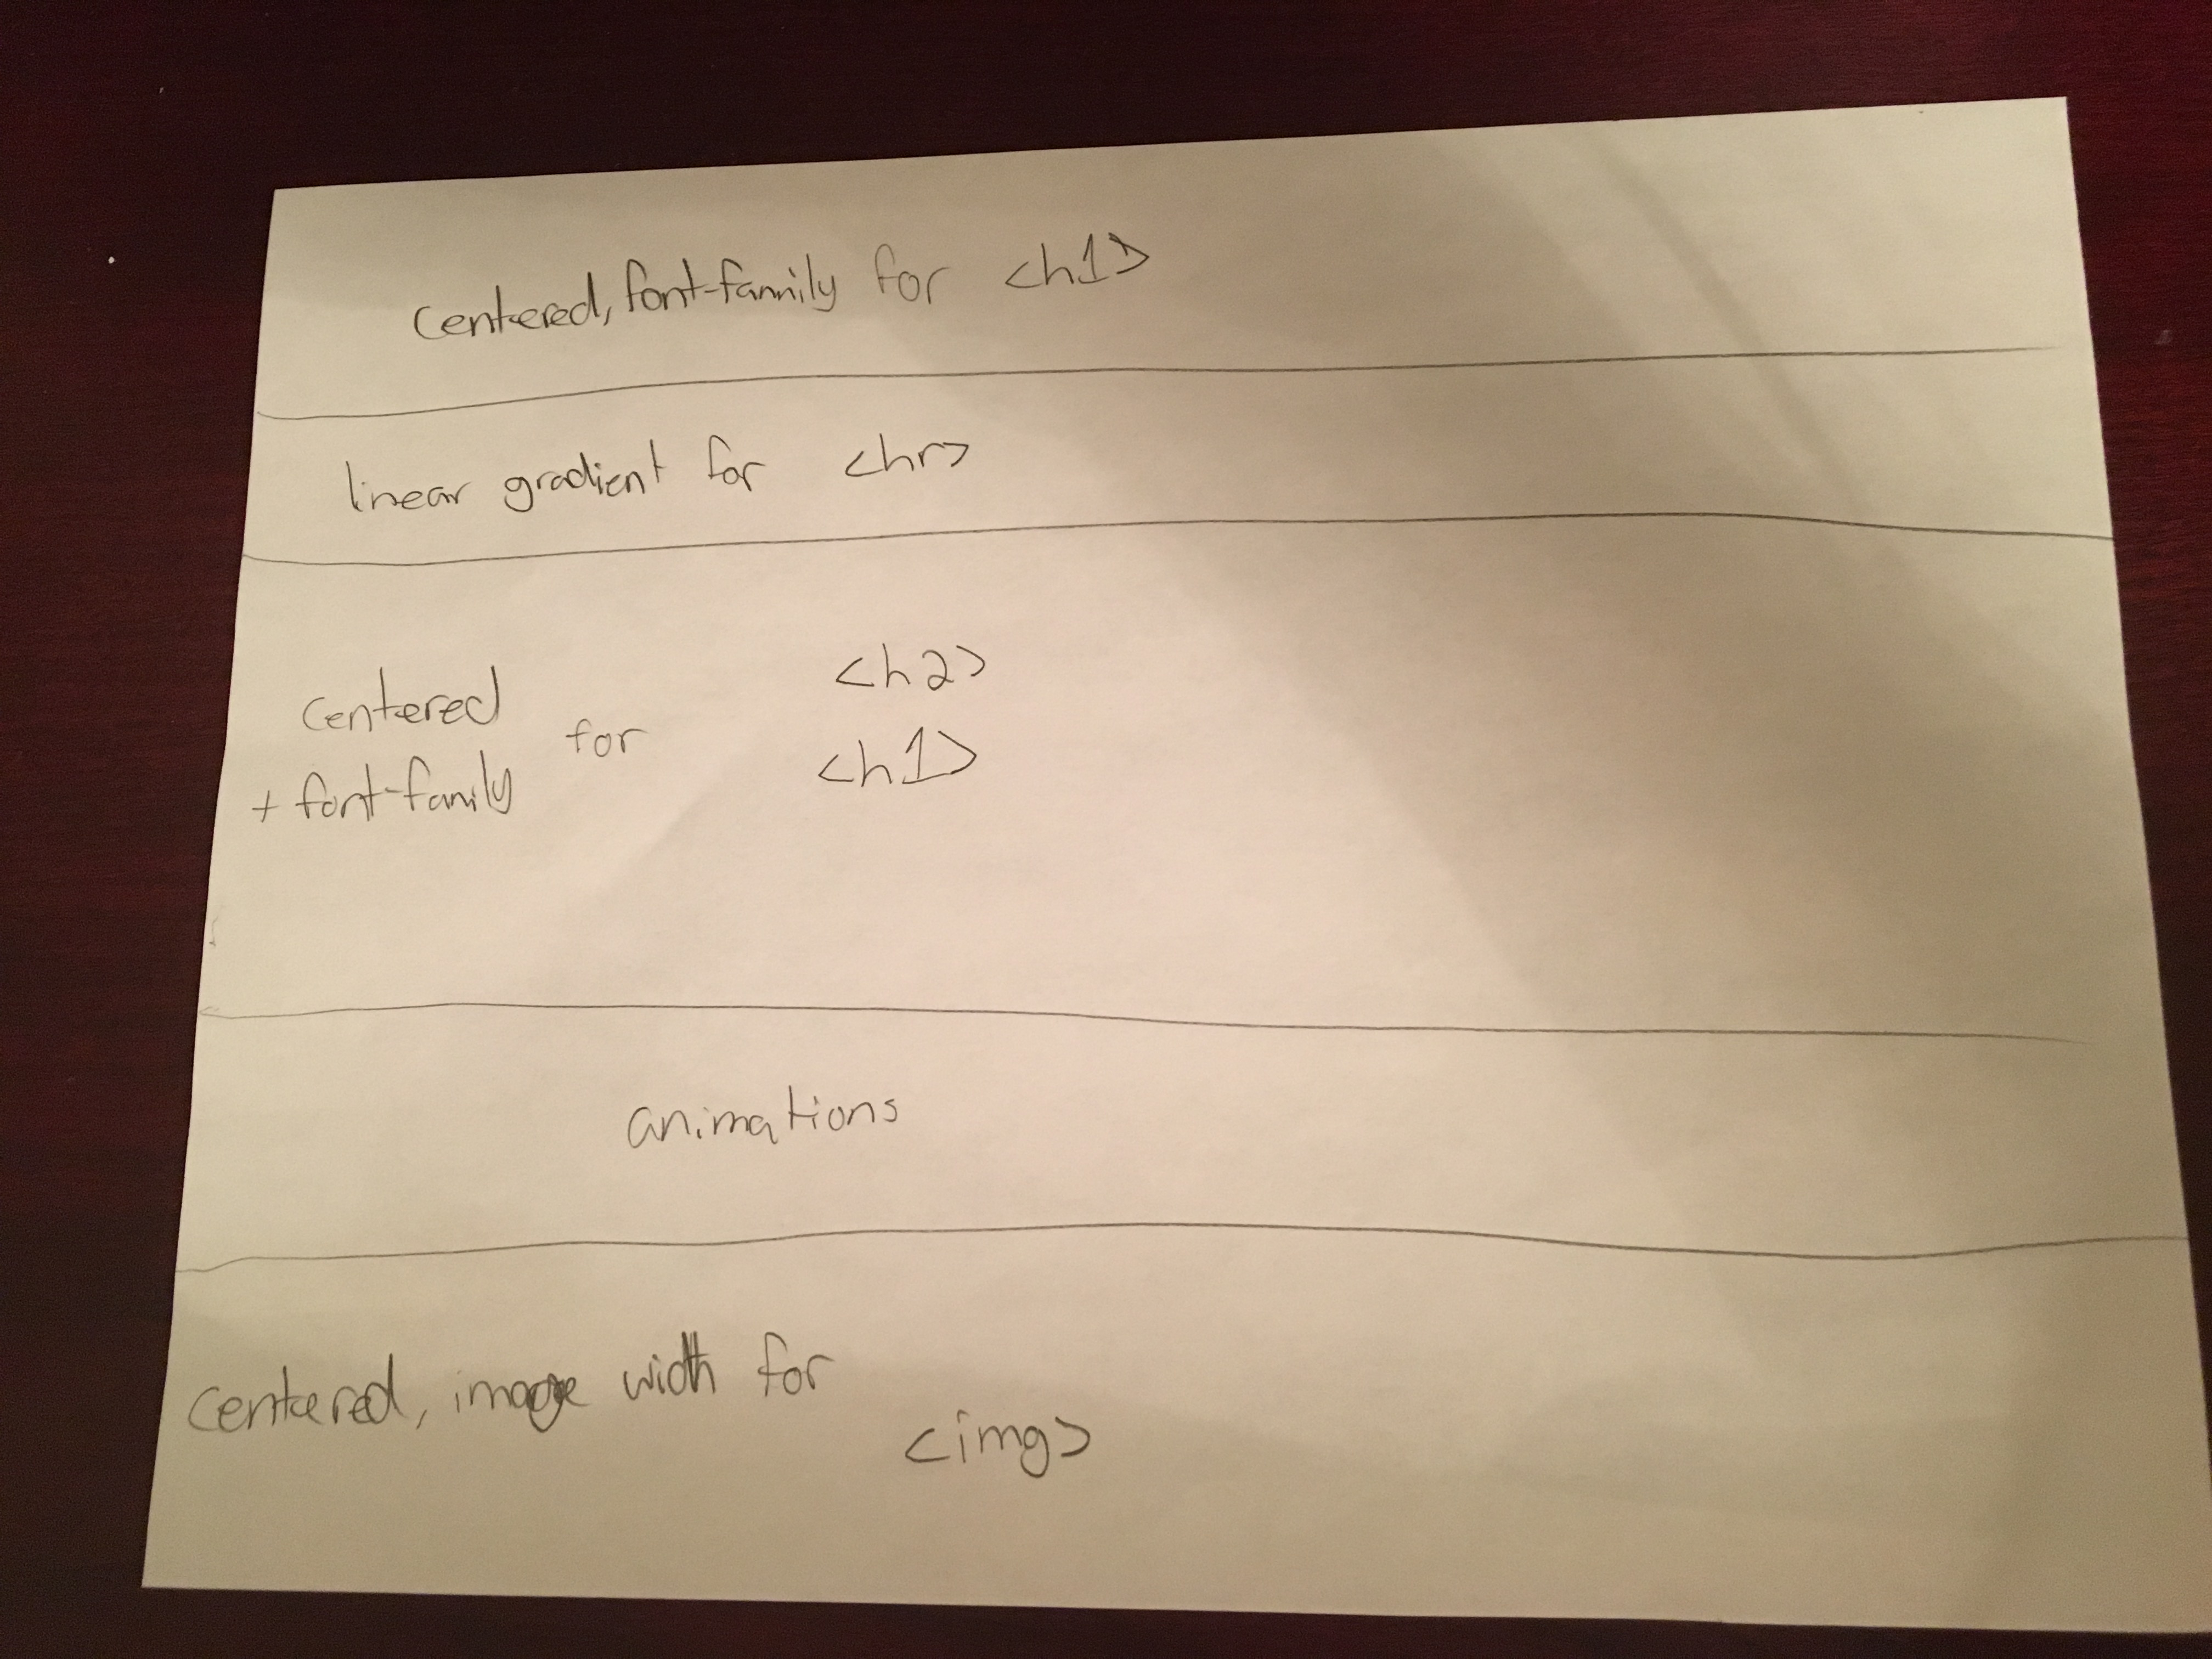 Centered, font-family for <h1>
linear gradient for <hr>
Centered <h2>
+ font-family for <h1>
animations
Centered, image width for <img>